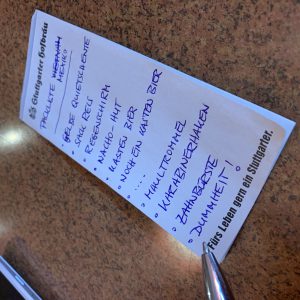 Stuttgarter Hofbräu
PACKLISTE
MEXIKO
- GELBE QUIETSCHENTE
- SACK REIS
- REGENSCHIRM
- NACHO-HUT
- KASTEN BIER
- NOCH EIN KASTEN BIER
- ....
- MAULTROMMEL
- KARABINERHAKEN
- ZAHNBÜRSTE
- DUMMHEIT!
Fürs Leben gern ein Stuttgarter.